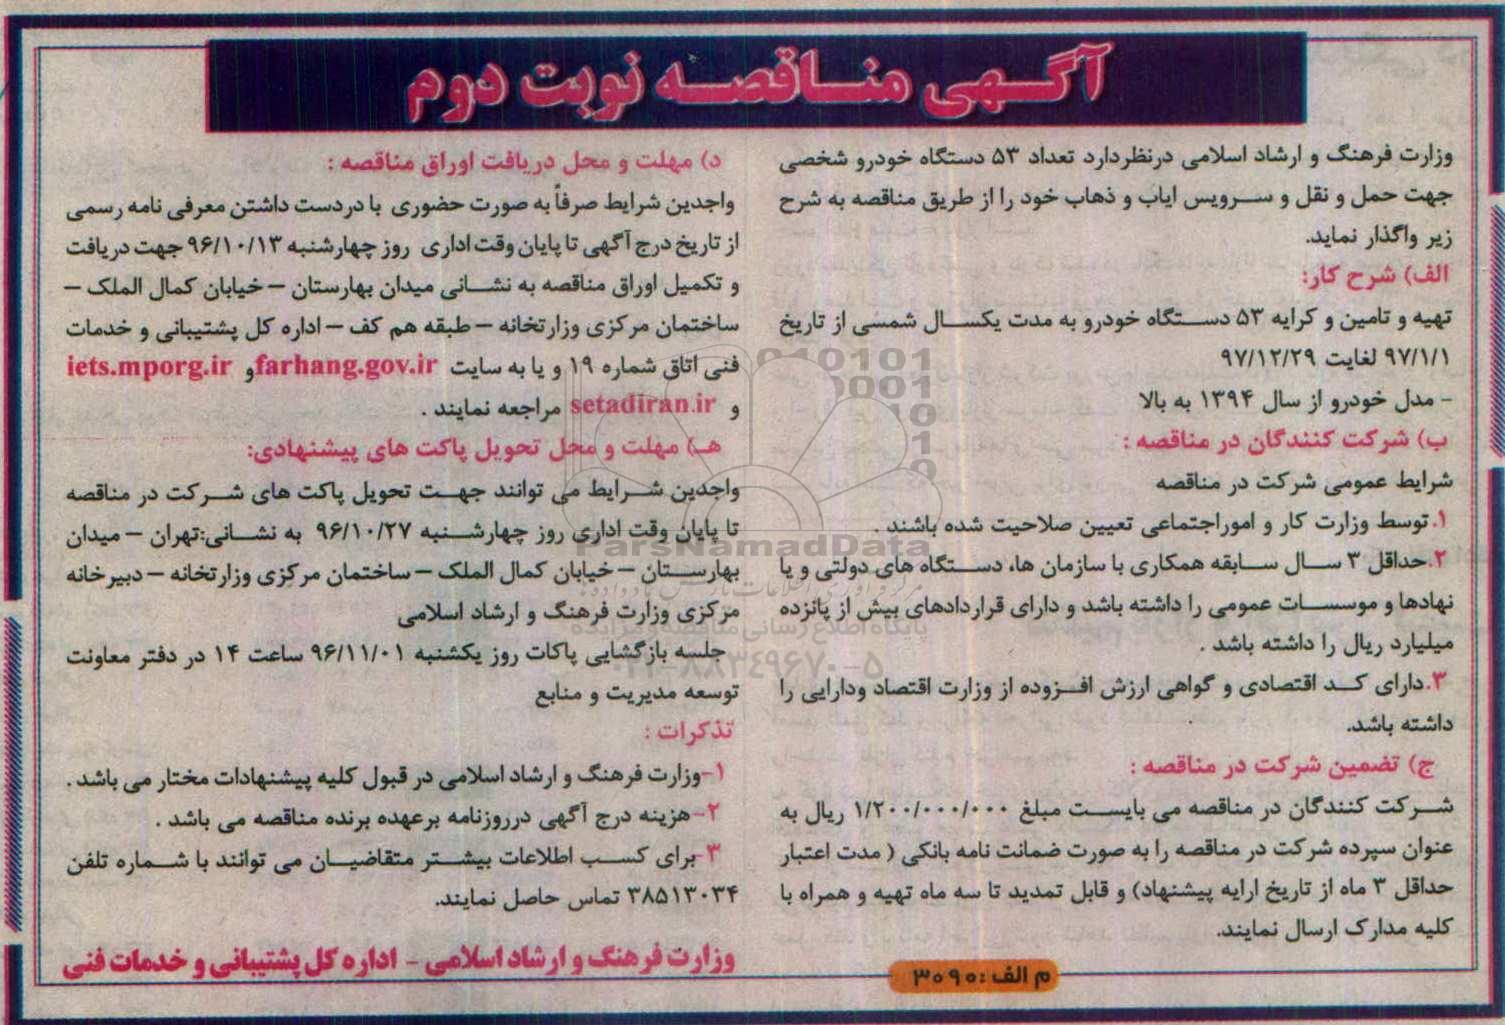 آگهی مناقصه نوبت دوم
وزارت فرهنگ و ارشاد اسلامی درنظردارد تعداد ۵۳ دستگاه خودرو شخصی
جهت حمل و نقل و سرویس ایاب و ذهاب خود را از طریق مناقصه به شرح
زیر واگذار نماید.
الف) شرح کار:
تهیه و تامین و کرایه ۵۳ دستگاه خودرو به مدت یکسال شمسی از تاریخ
۹۷/۱/۱ لغایت ۹۷/۱۲/۲۹
- مدل خودرو از سال ۱۳۹۴ به بالا
ب) شرکت کنندگان در مناقصه :
شرایط عمومی شرکت در مناقصه
۱.توسط وزارت کار و اموراجتماعی تعیین صلاحیت شده باشند .
۲.حداقل ۳ سال سابقه همکاری با سازمان ها، دستگاه های دولتی و یا
نهادها و موسسات عمومی را داشته باشد و دارای قراردادهای بیش از پانزده
میلیارد ریال را داشته باشد .
۳.دارای کد اقتصادی و گواهی ارزش افزوده از وزارت اقتصاد ودارایی را
داشته باشد.
ج) تضمین شرکت در مناقصه :
شرکت کنندگان در مناقصه می بایست مبلغ ۱/۲۰۰/۰۰۰/۰۰۰ ریال به
عنوان سپرده شرکت در مناقصه را به صورت ضمانت نامه بانکی ( مدت اعتبار
حداقل ۳ ماه از تاریخ ارایه پیشنهاد) و قابل تمدید تا سه ماه تهیه و همراه با
کلیه مدارک ارسال نمایند.
م الف :۳۰۹۰
د) مهلت و محل دریافت اوراق مناقصه :
واجدین شرایط صرفاً به صورت حضوری با دردست داشتن معرفی نامه رسمی
از تاریخ درج آگهی تا پایان وقت اداری روز چهارشنبه ۹۶/۱۰/۱۳ جهت دریافت
و تکمیل اوراق مناقصه به نشانی میدان بهارستان – خیابان کمال الملک –
ساختمان مرکزی وزارتخانه – طبقه هم کف – اداره کل پشتیبانی و خدمات
فنی اتاق شماره ۱۹ و یا به سایت farhang.gov.ir و iets.mporg.ir
و setadiran.ir مراجعه نمایند .
هـ) مهلت و محل تحویل پاکت های پیشنهادی:
واجدین شرایط می توانند جهت تحویل پاکت های شرکت در مناقصه
تا پایان وقت اداری روز چهارشنبه ۹۶/۱۰/۲۷ به نشانی:تهران – میدان
بهارستان – خیابان کمال الملک – ساختمان مرکزی وزارتخانه – دبیرخانه
مرکزی وزارت فرهنگ و ارشاد اسلامی
جلسه بازگشایی پاکات روز یکشنبه ۹۶/۱۱/۰۱ ساعت ۱۴ در دفتر معاونت
توسعه مدیریت و منابع
تذکرات :
۱-وزارت فرهنگ و ارشاد اسلامی در قبول کلیه پیشنهادات مختار می باشد .
۲-هزینه درج آگهی درروزنامه برعهده برنده مناقصه می باشد .
۳-برای کسب اطلاعات بیشتر متقاضیان می توانند با شماره تلفن
۳۸۵۱۳۰۳۴ تماس حاصل نمایند.
وزارت فرهنگ و ارشاد اسلامی - اداره کل پشتیبانی و خدمات فنی
ParsNamadData
پایگاه اطلاع رسانی مناقصه و مزایده
۰۲۱-۸۸۳۴۹۶۷۰-۵